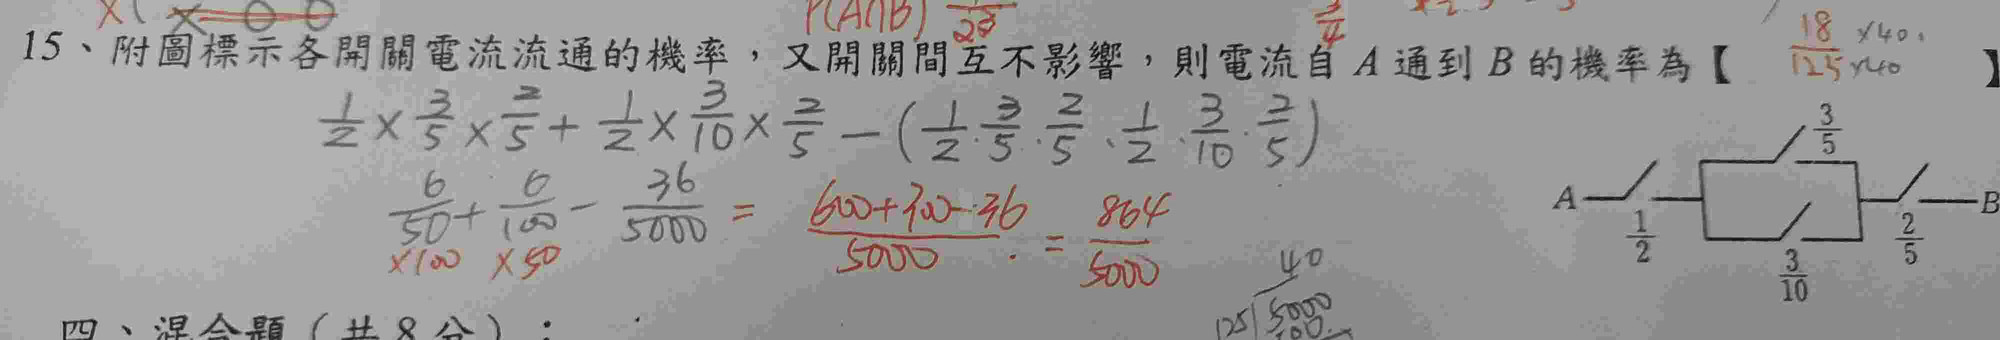 P(A∩B)
15、附圖標示各開關電流流通的機率，又開關間互不影響，則電流自 A 通到 B 的機率為【 18/125 ×40 ×40 】
1/2 × 3/5 × 2/5 + 1/2 × 3/10 × 2/5 − (1/2 · 3/5 · 2/5 · 1/2 · 3/10 · 2/5)
6/50 + 6/100 − 36/5000 = 600+300-36/5000 = 864/5000
×100 ×50
A 1/2 3/5 3/10 2/5 B
40
125 5000
四、混合題（共 8 分）：